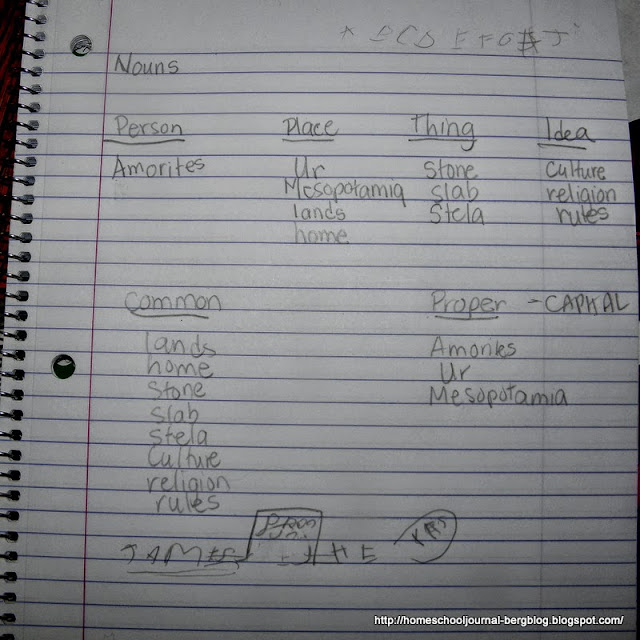 A B C D E F G H J
Nouns
Person Place Thing Idea
Amorites Ur Stone Culture
Mesopotamia slab religion
lands Stela rules
home
Common Proper - CAPITAL
lands Amorites
home Ur
Stone Mesopotamia
slab
stela
Culture
religion
rules
JAMES THE
http://homeschooljournal-bergblog.blogspot.com/